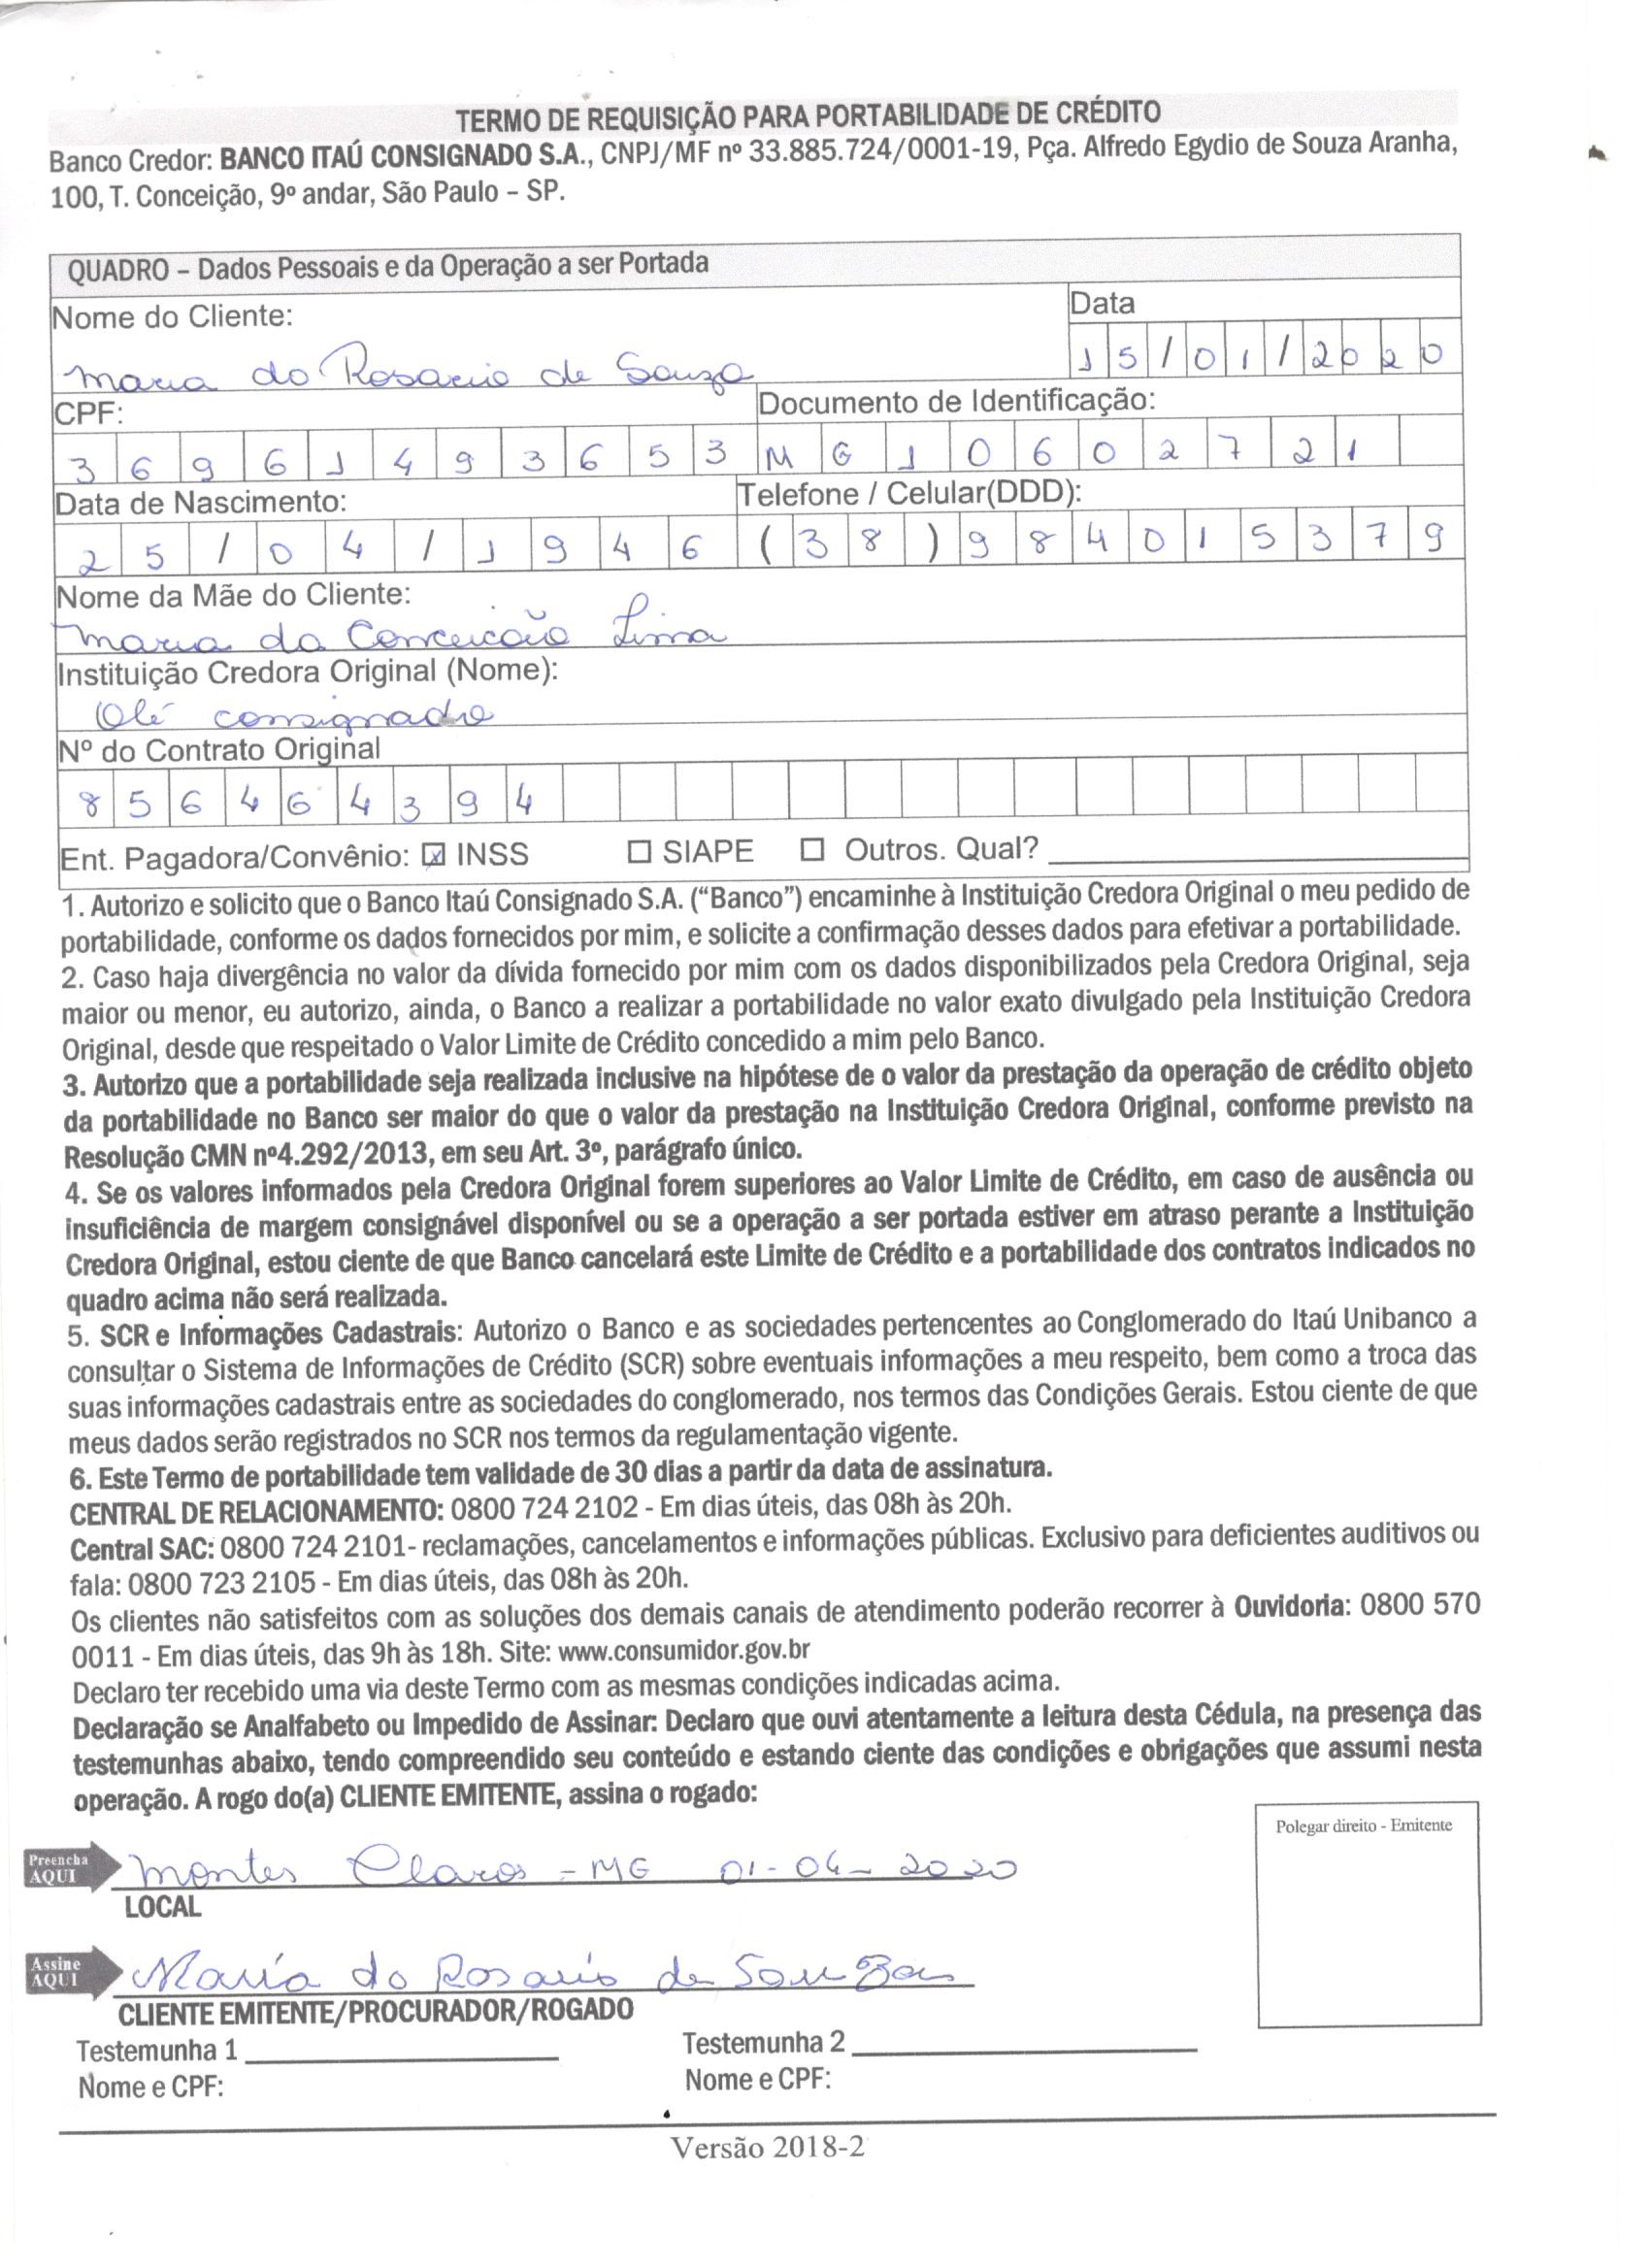 TERMO DE REQUISIÇÃO PARA PORTABILIDADE DE CRÉDITO
Banco Credor: BANCO ITAÚ CONSIGNADO S.A., CNPJ/MF nº 33.885.724/0001-19, Pça. Alfredo Egydio de Souza Aranha,
100, T. Conceição, 9º andar, São Paulo – SP.
QUADRO – Dados Pessoais e da Operação a ser Portada
Nome do Cliente: Data
Maria do Rosario de Souza 15/01/2020
CPF: Documento de Identificação:
36961493653 MG10602721
Data de Nascimento: Telefone / Celular(DDD):
25/04/1946 (38)984015379
Nome da Mãe do Cliente:
Maria da Conceição Lima
Instituição Credora Original (Nome):
Olé consignado
Nº do Contrato Original
856464394
Ent. Pagadora/Convênio: ☒ INSS ☐ SIAPE ☐ Outros. Qual?
1. Autorizo e solicito que o Banco Itaú Consignado S.A. (“Banco”) encaminhe à Instituição Credora Original o meu pedido de
portabilidade, conforme os dados fornecidos por mim, e solicite a confirmação desses dados para efetivar a portabilidade.
2. Caso haja divergência no valor da dívida fornecido por mim com os dados disponibilizados pela Credora Original, seja
maior ou menor, eu autorizo, ainda, o Banco a realizar a portabilidade no valor exato divulgado pela Instituição Credora
Original, desde que respeitado o Valor Limite de Crédito concedido a mim pelo Banco.
3. Autorizo que a portabilidade seja realizada inclusive na hipótese de o valor da prestação da operação de crédito objeto
da portabilidade no Banco ser maior do que o valor da prestação na Instituição Credora Original, conforme previsto na
Resolução CMN nº4.292/2013, em seu Art. 3º, parágrafo único.
4. Se os valores informados pela Credora Original forem superiores ao Valor Limite de Crédito, em caso de ausência ou
insuficiência de margem consignável disponível ou se a operação a ser portada estiver em atraso perante a Instituição
Credora Original, estou ciente de que Banco cancelará este Limite de Crédito e a portabilidade dos contratos indicados no
quadro acima não será realizada.
5. SCR e Informações Cadastrais: Autorizo o Banco e as sociedades pertencentes ao Conglomerado do Itaú Unibanco a
consultar o Sistema de Informações de Crédito (SCR) sobre eventuais informações a meu respeito, bem como a troca das
suas informações cadastrais entre as sociedades do conglomerado, nos termos das Condições Gerais. Estou ciente de que
meus dados serão registrados no SCR nos termos da regulamentação vigente.
6. Este Termo de portabilidade tem validade de 30 dias a partir da data de assinatura.
CENTRAL DE RELACIONAMENTO: 0800 724 2102 - Em dias úteis, das 08h às 20h.
Central SAC: 0800 724 2101- reclamações, cancelamentos e informações públicas. Exclusivo para deficientes auditivos ou
fala: 0800 723 2105 - Em dias úteis, das 08h às 20h.
Os clientes não satisfeitos com as soluções dos demais canais de atendimento poderão recorrer à Ouvidoria: 0800 570
0011 - Em dias úteis, das 9h às 18h. Site: www.consumidor.gov.br
Declaro ter recebido uma via deste Termo com as mesmas condições indicadas acima.
Declaração se Analfabeto ou Impedido de Assinar: Declaro que ouvi atentamente a leitura desta Cédula, na presença das
testemunhas abaixo, tendo compreendido seu conteúdo e estando ciente das condições e obrigações que assumi nesta
operação. A rogo do(a) CLIENTE EMITENTE, assina o rogado:
Polegar direito - Emitente
Preencha
AQUI
Montes Claros - MG 01-04-2020
LOCAL
Assine
AQUI
Maria do Rosario de Souza
CLIENTE EMITENTE/PROCURADOR/ROGADO
Testemunha 1 Testemunha 2
Nome e CPF: Nome e CPF:
Versão 2018-2